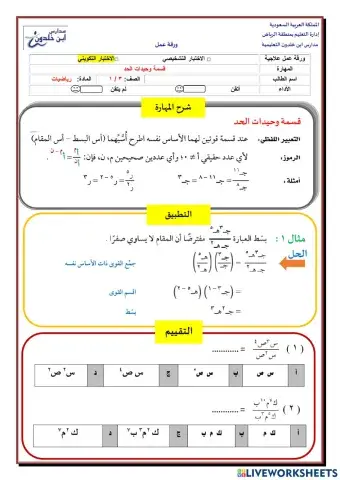 المملكة العربية السعودية
إدارة التعليم بمنطقة الرياض
مدارس ابن خلدون التعليمية
ورقة عمل
مدارس
ابن خلدون
ورقة عمل علاجية □ الاختبار التشخيصي □ الاختبار التكويني
المهارة قسمة وحيدات الحد
اسم الطالب الصف: ٣ / ١ المادة: رياضيات
الأداء أتقن لم يتقن
شرح المهارة
قسمة وحيدات الحد
التعبير اللفظي: عند قسمة قوتين لهما الأساس نفسه اطرح أسّيهما (أس البسط - أس المقام)
الرموز: لأي عدد حقيقي أ ≠ ٠، وأي عددين صحيحين م، ن، فإن: أ^م / أ^ن = أ^(م - ن)
أمثلة: جـ^١١ / جـ^٨ = جـ^(١١ - ٨) = جـ^٣ ر^٥ / ر^٢ = ر^(٥ - ٢) = ر^٣
التطبيق
مثال ١ : بسّط العبارة جـ^٣ هـ^٥ / جـ هـ^٢ مفترضًا أن المقام لا يساوي صفرًا.
الحل جـ^٣ هـ^٥ / جـ هـ^٢ = (جـ^٣ / جـ)(هـ^٥ / هـ^٢) جمّع القوى ذات الأساس نفسه
= (جـ^(٣-١))(هـ^(٥-٢)) اقسم القوى
= جـ^٢ هـ^٣ بسّط
التقييم
( ١ ) س^٣ ص^٤ / س^٢ ص = ............
أ س ص ب س ص^٣ ج س ص^٤ د س^٢ ص^٢
( ٢ ) = ............
أ ك م ب ك م ب ج ك^٢ م^٣ ب^٧ د ك^٢ م^٧
LIVEWORKSHEETS